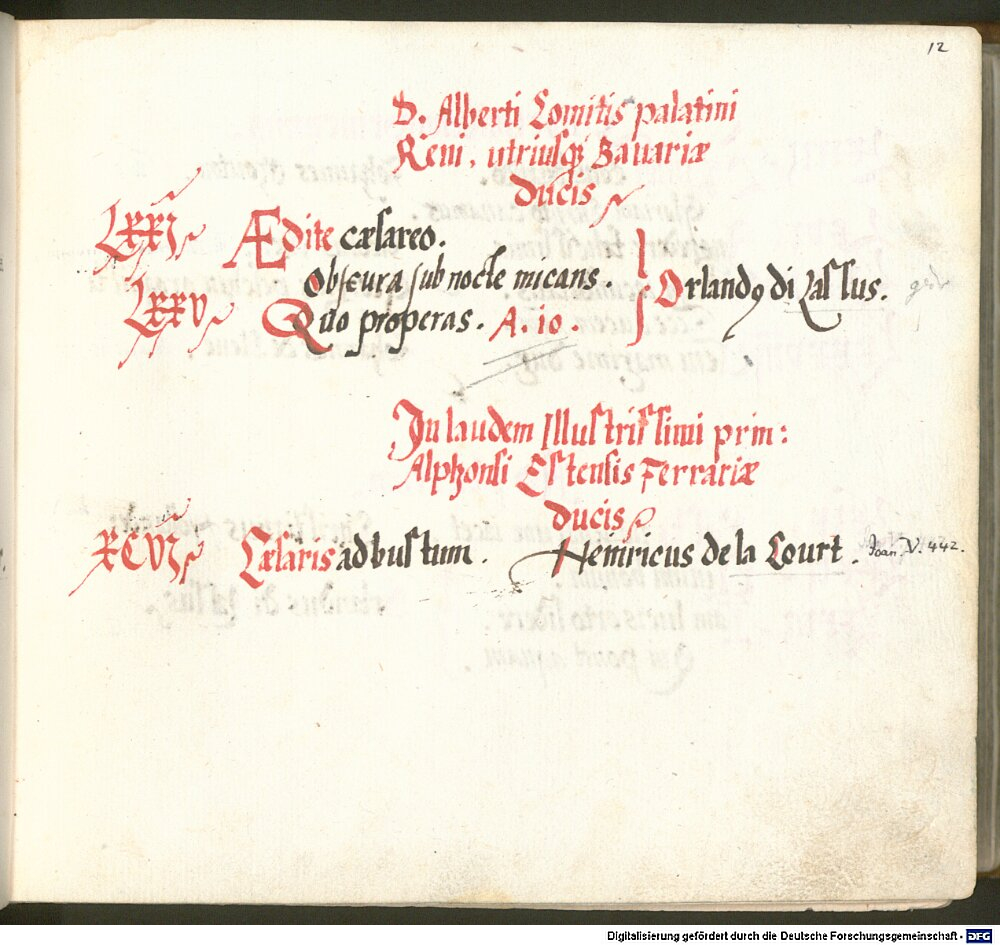 12
D. Alberti Comitis palatini
Reni, utriusq; Bavariæ
Ducis
LXXI Ædite cæsareo.
Obscura sub nocte micans.
LXXV Quo properas. A. 10. Orland9 di Lassus.
In laudem Illustrissimi prin:
Alphonsi Estensis Ferrariæ
Ducis
XCVI Cæsaris ad bustum. Henricus de la Court. Joan. V. 442.
Digitalisierung gefördert durch die Deutsche Forschungsgemeinschaft - DFG